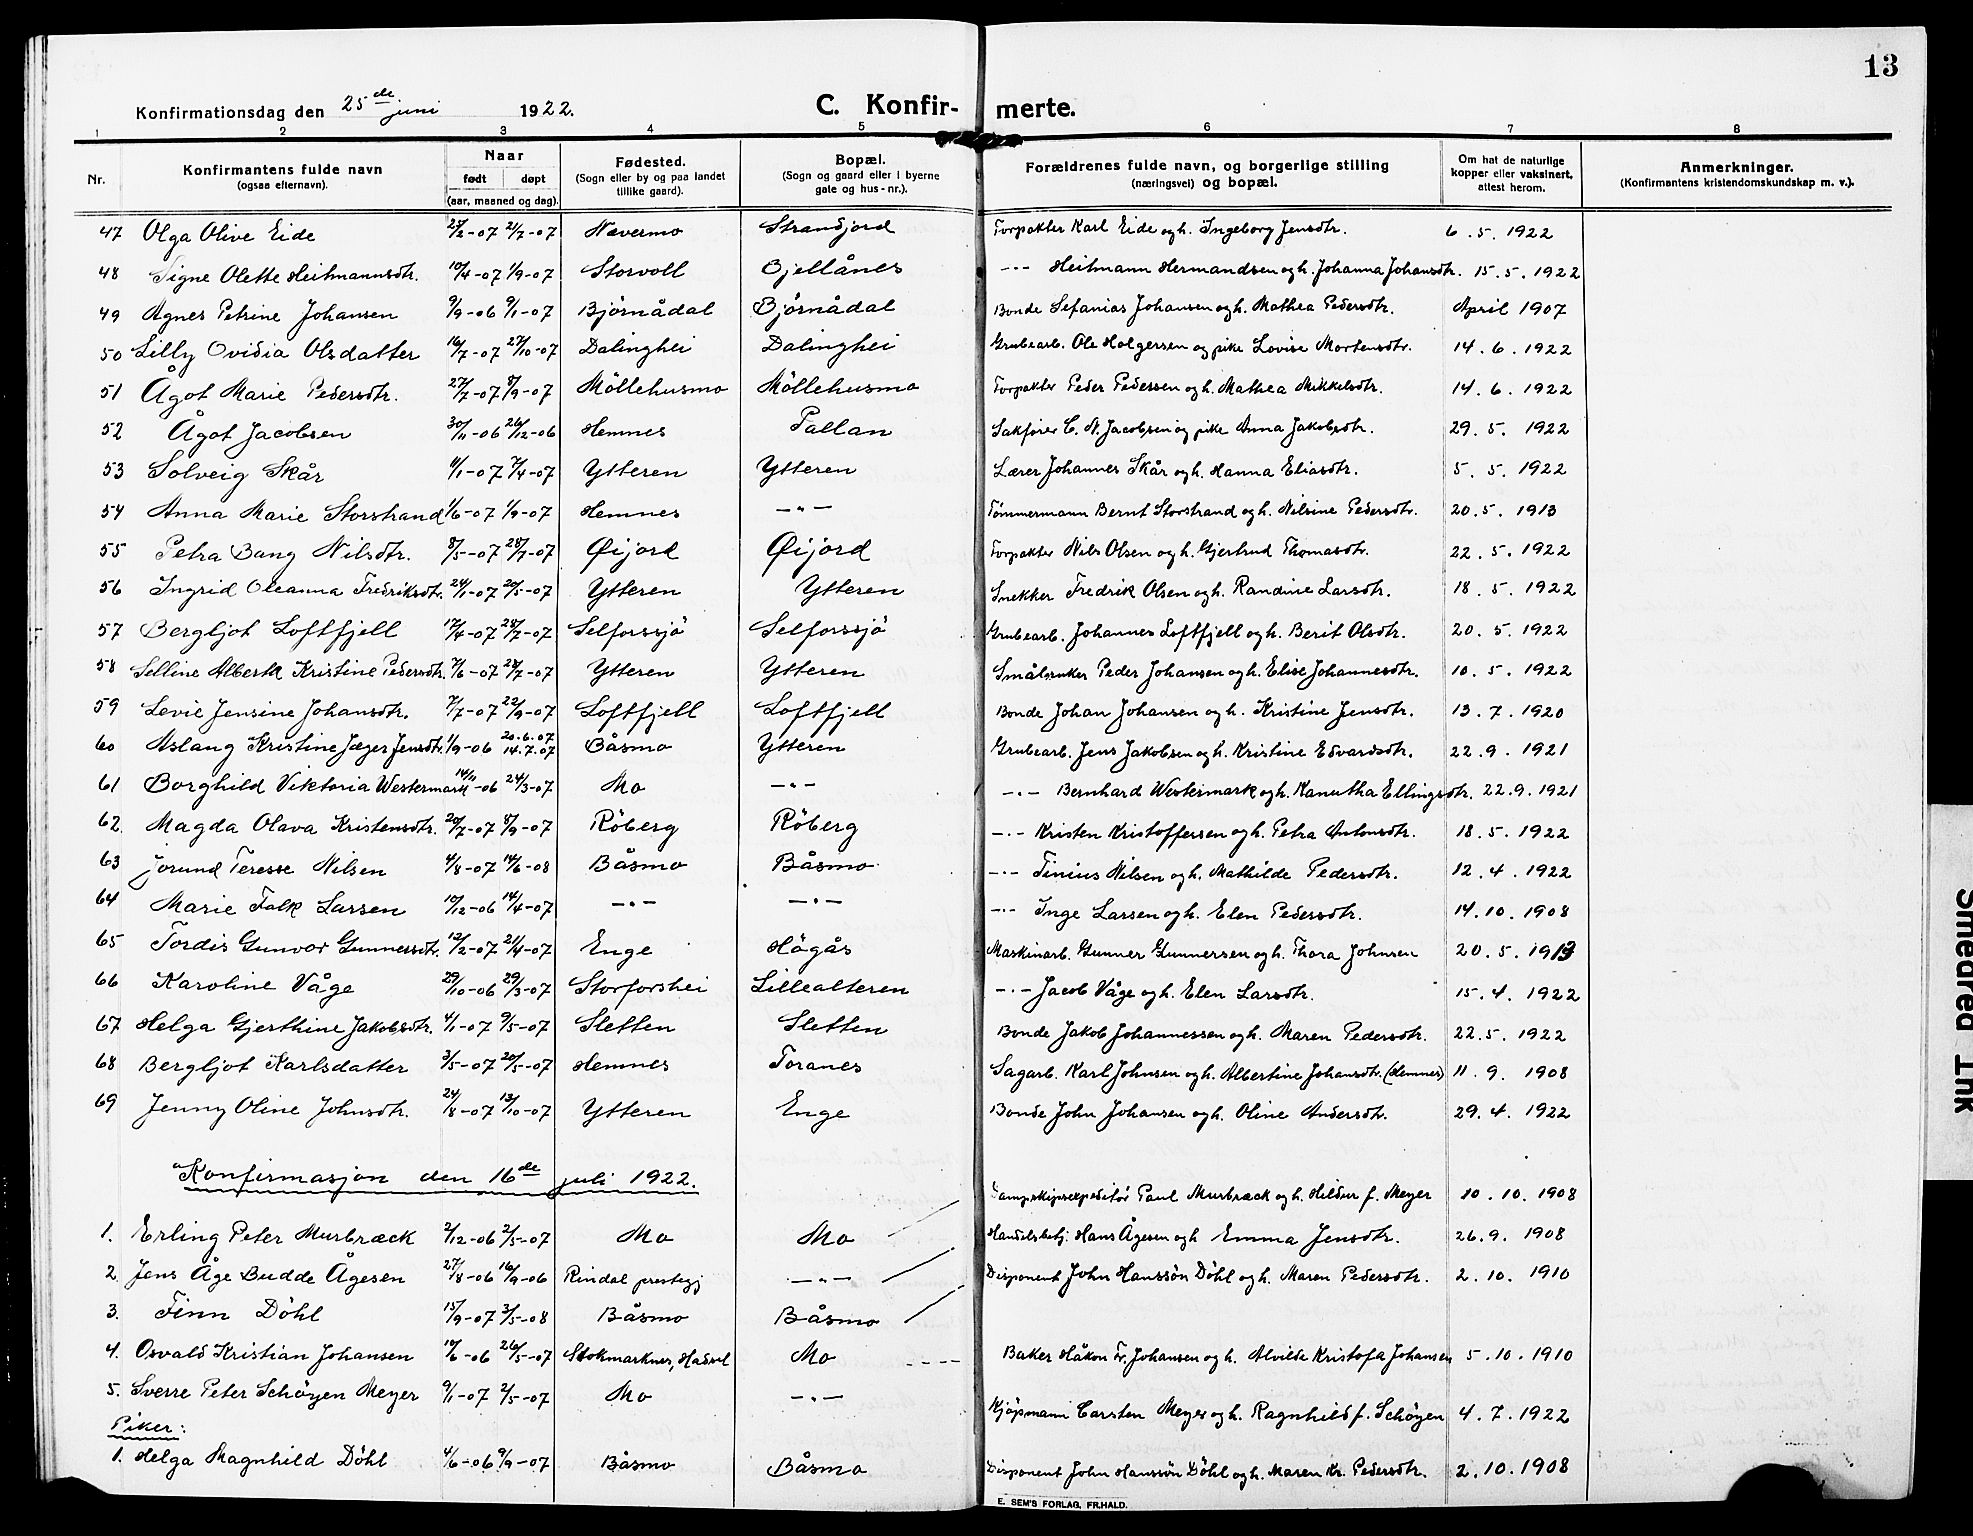 13
Konfirmationsdag den 25de juni 1922. C. Konfirmerte.
1 2 3 4 5 6 7 8
Nr. Konfirmantens fulde navn (ogsaa efternavn). Naar født døpt (aar, maaned og dag). Fødested. (Sogn eller by og paa landet tillike gaard). Bopæl. (Sogn og gaard eller i byerne gate og hus-nr.). Forældrenes fulde navn, og borgerlige stilling (næringsvei) og bopæl. Om hat de naturlige kopper eller vaksinert, attest herom. Anmerkninger. (Konfirmantens kristendomskundskap m. v.).
47 Olga Olive Eide 27/2-07 21/7-07 Nævermo Strandjord Forpakter Karl Eide og h. Ingeborg Jensdtr. 6.5.1922
48 Signe Olette Heitmannsdtr. 10/4-07 1/9-07 Storvoll Bjellånes -"- Heitmann Hermandsen og h. Johanna Johansdtr. 15.5.1922
49 Agnes Petrine Johansen 9/9-06 9/1-07 Bjørnådal Bjørnådal Bonde Sefanias Johansen og h. Mathea Pedersdtr. April 1907
50 Lilly Ovidia Olsdatter 16/7-07 27/10-07 Dalinghei Dalinghei Grubearb. Ole Holgersen og pike Lovise Mortensdtr. 14.6.1922
51 Ågot Marie Pedersdtr. 27/7-07 8/9-07 Möllehusmo Möllehusmo Forpakter Peder Pedersen og h. Mathea Mikkelsdtr. 14.6.1922
52 Ågot Jacobsen 30/11-06 26/12-06 Hemnes Pallan Sakfører C. N. Jacobsen og pike Anna Jakobsdtr. 29.5.1922
53 Solveig Skår 4/1-07 7/4-07 Ytteren Ytteren Lærer Johannes Skår og h. Hanna Eliasdtr. 5.5.1922
54 Anna Marie Storstrand 1/6-07 1/9-07 Hemnes -"- Tømmermann Bernt Storstrand og h. Nilsine Pedersdtr. 20.5.1913
55 Petra Bang Nilsdtr. 8/5-07 28/7-07 Øijord Øijord Forpakter Nils Olsen og h. Gjertrud Thomasdtr. 22.5.1922
56 Ingrid Oleanna Fredriksdtr. 24/1-07 20/5-07 Ytteren Ytteren Snekker Fredrik Olsen og h. Randine Larsdtr. 18.5.1922
57 Bergljot Loftfjell 17/4-07 28/7-07 Selforssjö Selforssjö Grubearb. Johannes Loftfjell og h. Berit Olsdtr. 20.5.1922
58 Selline Kristine Pedersdtr. 7/6-07 28/7-07 Ytteren Ytteren Småbruker Peder Johansen og h. Elise Johannesdtr. 10.5.1922
59 Levie Jensine Johansdtr. 7/7-07 22/9-07 Loftfjell Loftfjell Bonde Johan Johansen og h. Kristine Jensdtr. 13.7.1920
60 Aslaug Kristine Jæger Jensdtr. 1/9-06 20.6.07 14.7.07 Båsmo Ytteren Grubearb. Jens Jakobsen og h. Kristine Edvardsdtr. 22.9.1921
61 Borghild Viktoria Westermark 14/11-06 24/3-07 Mo -"- -"- Bernhard Westermark og h. Kanutha Ellingsdtr. 22.9.1921
62 Magda Olava Kristensdtr. 20/7-07 8/9-07 Röberg Röberg -"- Kristen Kristoffersen og h. Petra Antonsdtr. 18.5.1922
63 Jorund Teresse Nilsen 4/8-07 14/6-08 Båsmo Båsmo -"- Tinius Nilsen og h. Mathilde Pedersdtr. 12.4.1922
64 Marie Falk Larsen 10/12-06 14/4-07 -"- -"- -"- Inge Larsen og h. Elen Pedersdtr. 14.10.1908
65 Tordis Gunvor Gunnersdtr. 12/2-07 21/4-07 Enge Högås Maskinarb. Gunner Gunnersen og h. Thora Johnsen 20.5.1913
66 Karoline Våge 29/10-06 29/3-07 Storforshei Lillealteren -"- Jacob Våge og h. Elen Larsdtr. 15.4.1922
67 Helga Gjerthine Jakobsdtr. 4/1-07 9/5-07 Sletten Sletten Bonde Jakob Johannessen og h. Maren Pedersdtr. 22.5.1922
68 Bergljot Karlsdatter 3/5-07 20/5-07 Hemnes Toranes Sagarb. Karl Johnsen og h. Albertine Johansdtr. (Hemnes) 11.9.1908
69 Jenny Oline Johnsdtr. 24/8-07 13/10-07 Ytteren Enge Bonde John Johansen og h. Oline Andersdtr. 29.4.1922
Konfirmasjon den 16de juli 1922.
Dampskipsexpeditør Paul Murbræck og h. Hildur f. Meyer 10.10.1908
1. Erling Peter Murbræck 2/12-06 2/5-07 Mo Mo Handelsbetj. Hans Ågesen og h Emma Jensdtr. 26.9.1908
2 Jens Åge Budde Ågesen 27/8-06 16/9-06 Rindal prestegj -"- Disponent John Hanssön Döhl og h. Maren Pedersdtr. 2.10.1910
3. Finn Döhl 15/9-07 3/5-08 Båsmo Båsmo
4. Osvald Kristian Johansen 10/6-06 26/5-07 Stokmarknes, Hadsel Mo Baker Håkon Fr. Johansen og h. Alvilde Kristofa Johansen 5.10.1910
5. Sverre Peter Schöyen Meyer 9/1-07 2/5-07 Mo -"-
Kjøpmann Carsten Meyer og h. Ragnhild f. Schöyen 4.7.1922
Piker:
1. Helga Magnhild Döhl 4/6-06 9/9-07 Båsmo Båsmo Disponent John Hanssön Döhl og h. Maren Kr. Pedersdtr. 2.10.1908
E. SEM'S FORLAG, FR.HALD.